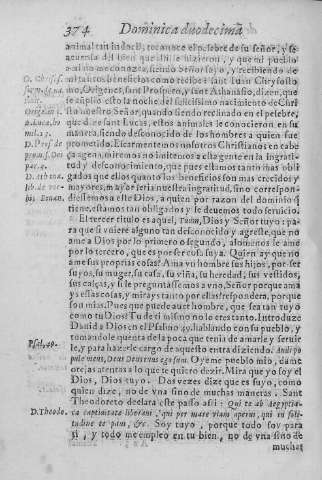 374 Dominica duodecima
animal tan indocil, reconoce el pesebre de su señor, y se
acuerda del bien que alli le hizieron, y que mi pueblo
a mi no me conozca, siendo señor suyo, y recibiendo de
mi tantos beneficios como recibe? Sant Iuan Chrysosto
mo, Origenes, sant Prospero, y sant Athanasio, dizen, que
se cumplio esto la noche del felicissimo nacimiento de Chri
sto nuestro señor, quando siendo reclinado en el pesebre,
que de animales le conocieron en su
manera, siendo desconocido de los hombres a quien fue
prometido. Escarmentemos nosotros Christianos en cabe
ça agena, miremos no imitemos a esta gente en la ingrati
tud y desconocimiento, que pues estamos tanto mas obli
gados que ellos quanto los beneficios son mas crecidos y
mayores, mayor seria nuestra ingratitud, sino correspon-
diessemos a este Dios, a quien por razon del dominio q̃
tiene, estamos tan obligados y le deuemos todo seruicio.
El tercer titulo es aquel, Tuum, Dios y Señor tuyo: pa-
ra que si uuiere alguno tan desconocido y agreste, que no
ame a Dios por lo primero o segundo, alomenos le ame
por lo tercero, que es por ser cosa suya. Quien ay que no
ame sus proprias cosas? Ama vn hombre sus hijos, por ser
suyos, su muger, su casa, su viña, su heredad, sus vestidos,
sus calças, y si le preguntassemos a vno, Señor porque ama
ys essas cosas, y mirays tanto por ellas? respondera, porque
son mias. Pues que puede auer hombre, que sea tan tuyo
como tu Dios? Tu de ti mismo no lo eres tanto. Introduze
Dauid a Dios en el Psalmo 49. hablando con su pueblo, y
tomandole quenta de la poca que tenia de amarle y seruir
le, y para hazerle cargo de aquesto entra diziendo. Audi po
pule meus, Deus Deus tuus ego sum. Oyeme pueblo mio, dame
orejas atentas a lo que te quiero dezir. Mira que yo soy el
Dios, Dios tuyo. Dos vezes dize que es suyo, como
quien dize, no de vna sino de muchas maneras. Sant
Theodoreto declara este passo assi: Qui te ab Aegyptia-
ca captiuitate liberaui, qui per mare viam aperui, qui in soli
tudine te paui, &c. Soy tuyo, porque todo soy para
ti, y todo me empleo en tu bien, no de vna sino de
muchas
D. Chris.
Origen.
D. Prosp.
D. Atha
Psal. 49.
D. Theodo.